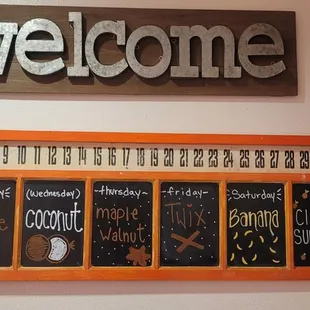 welcome
9 10 11 12 13 14 15 16 17 18 19 20 21 22 23 24 25 26 27 28 29
(wednesday)
coconut
-thursday-
maple
walnut
-friday-
Twix
Saturday
Banana